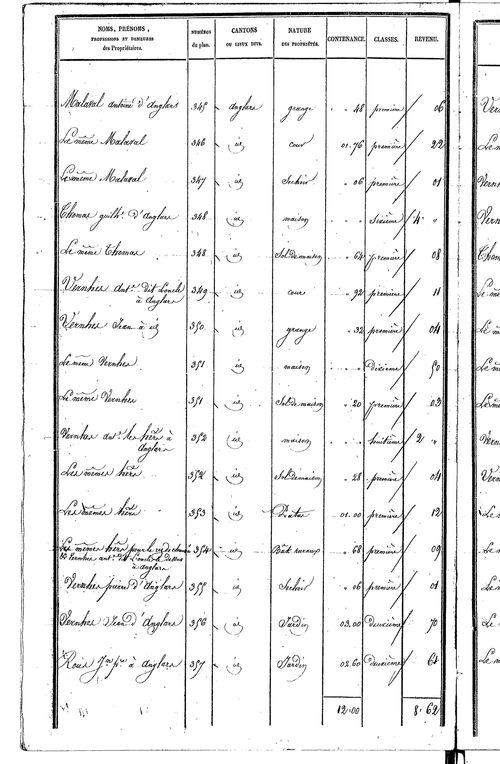 NOMS, PRÉNOMS, PROFESSIONS ET DEMEURES des Propriétaires. NUMÉROS du plan. CANTONS OU LIEUX DITS. NATURE DES PROPRIÉTÉS. CONTENANCE. CLASSES. REVENU.
Malaval antoine d'anglars 345 anglars grange " " 48 première 06
Le même Malaval 346 id cour 01.76 première 22
Le même Malaval 347 id Sechoir " 06 première 01
Thomas guilh. d'Anglars 348 id maison " " Sixième 4 "
Le même Thomas 348 id Sol de maison " 64 première 08
Vernhes ant.e dit Loncle à Anglars 349 id cour " 92 première 11
Vernhes Jean à id 350 id grange " 32 première 04
Le même Vernhes 351 id maison " " dixième 50
Le même Vernhes 351 id Sol de maison " 20 première 03
Vernhes ant.e les hérs à Anglars 352 id maison " " huitième 2 "
Les mêmes hérs 352 id Sol de maison " 28 première 04
Les mêmes hérs 353 id Patus 01.00 première 12
Les mêmes hérs pour le rez de ch
et Vernhes ant.e dit Loncle le dessus
à Anglars 354 id Bât. ruraux " 68 première 09
Vernhes pierre d'Anglars 355 id Sechoir " 06 première 01
Vernhes Jean d'Anglars 356 id Jardin 03.00 Deuxième 70
Roux à Anglars 357 id Jardin 02.60 Deuxième 61
12.00 8.62